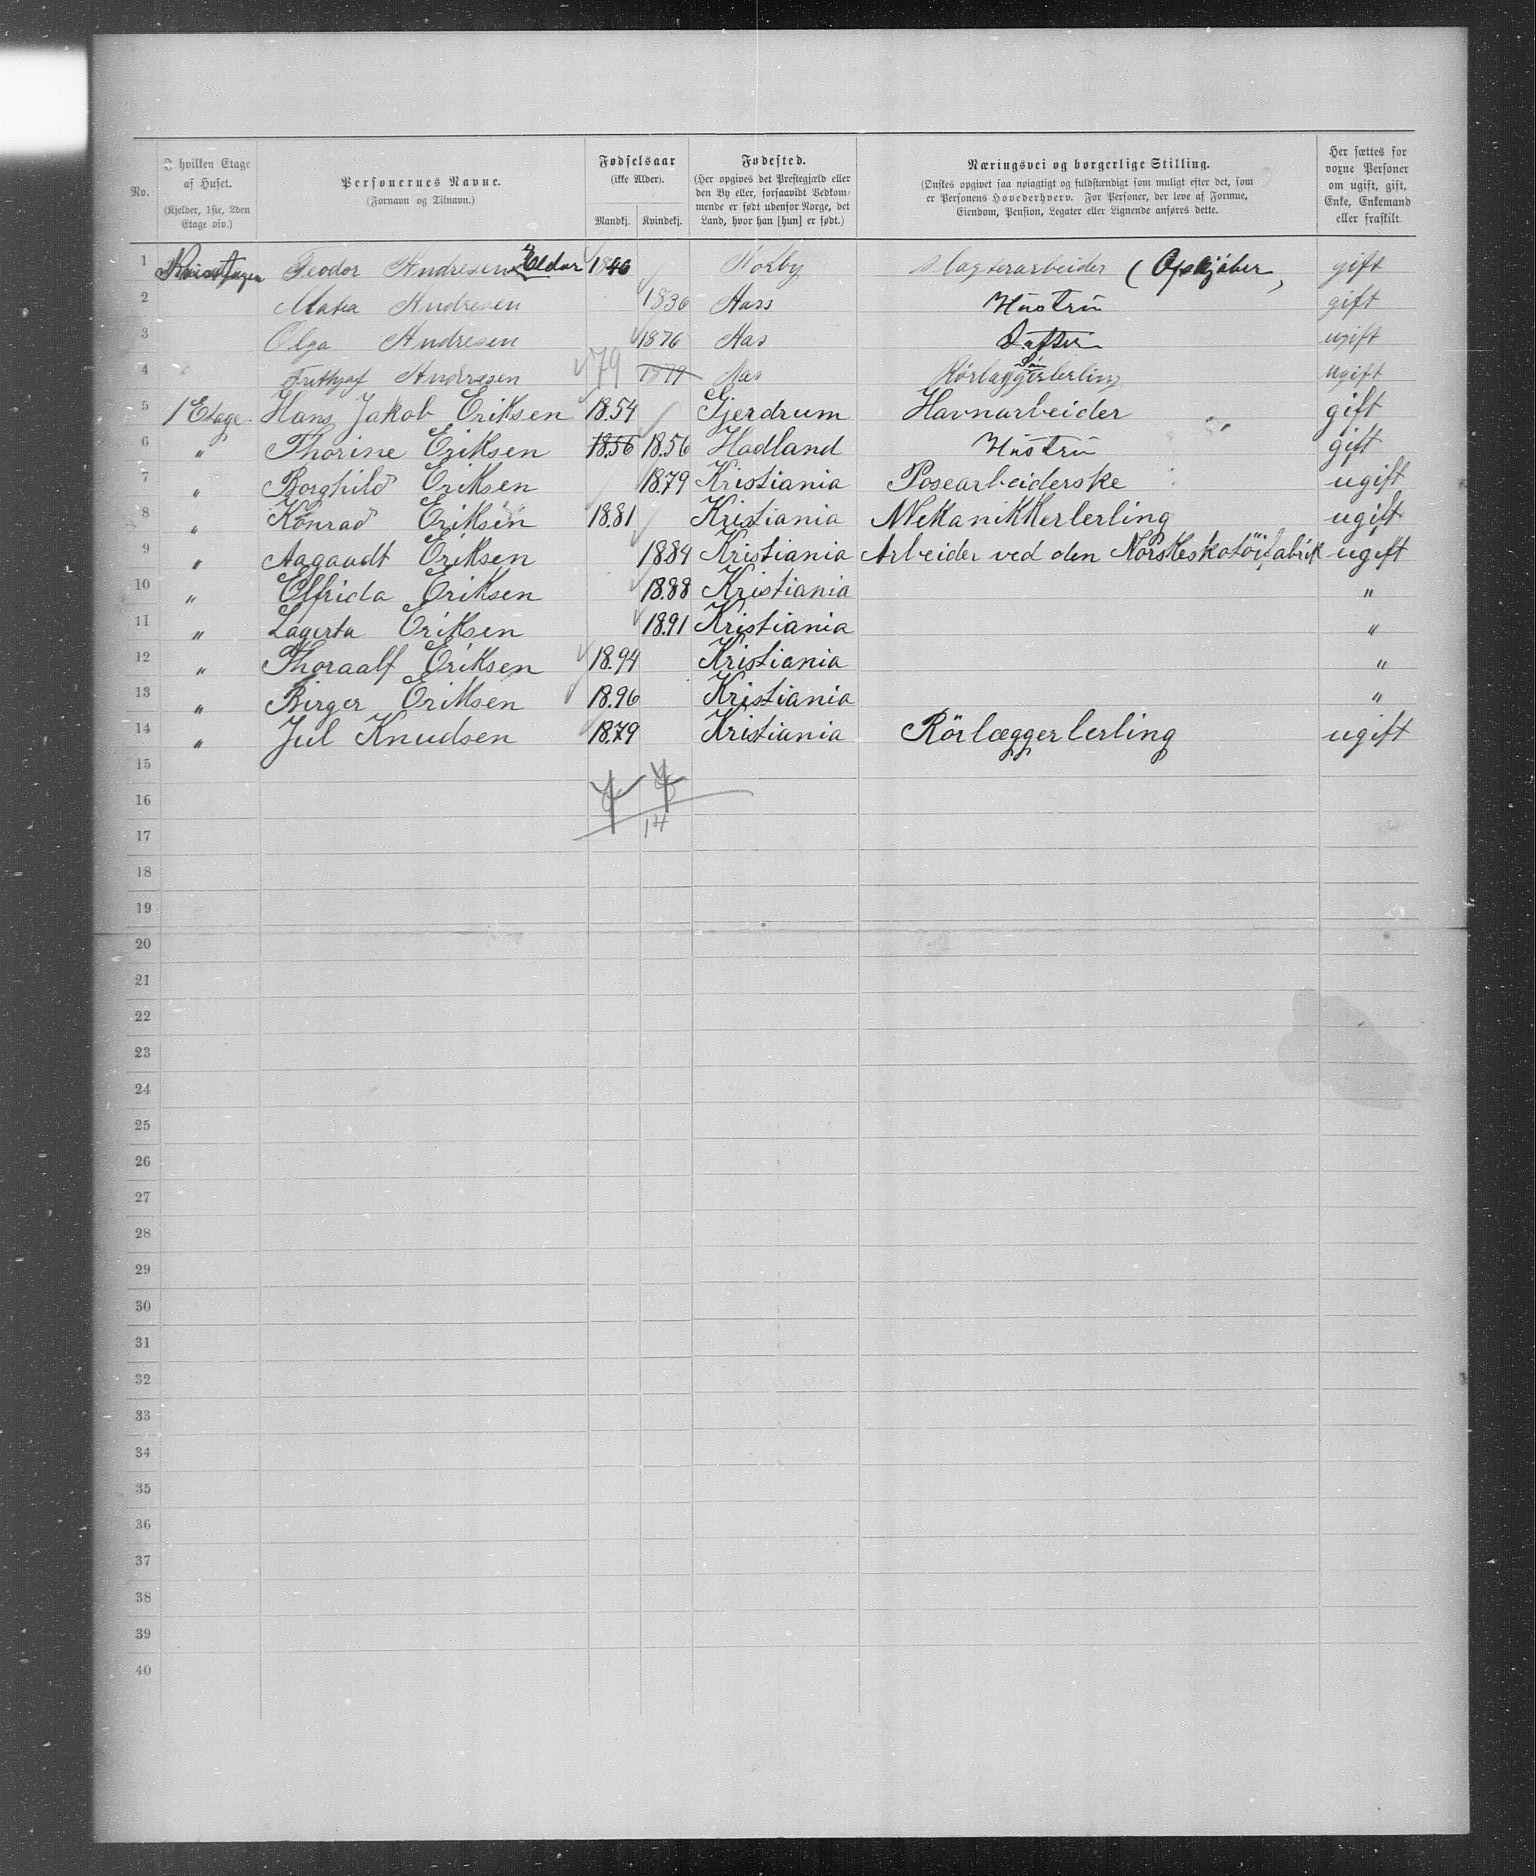 No.
I hvilken Etage af Huset.
(Kjelder, 1ste, 2den Etage osv.)
Personernes Navne.
(Fornavn og Tilnavn.)
Fødselsaar
(ikke Alder).
Mandkj. Kvindekj.
Fødested.
(Her opgives det Prestegjæld eller den By eller, forsaavidt Vedkommende er født udenfor Norge, det Land, hvor han [hun] er født.)
Næringsvei og borgerlige Stilling.
(Ønskes opgivet saa nøiagtigt og fuldstændigt som muligt efter det, som er Personens Hovederhverv. For Personer, der leve af Formue, Eiendom, Pension, Legater eller Lignende anføres dette.
Her sættes for voxne Personer om ugift, gift, Enke, Enkemand eller fraskilt.
1 Teodor Andresen 1846 gift
2 Andresen 1836 Aars Hustru gift
3 Olga Andresen 1876 Aas Datter ugift
4 Frithjof Andresen 79 1879 Aas Søn Rørlæggerlerling ugift
5 1 Etage. Hans Jakob Eriksen 1854 Gjerdrum Havnarbeider gift
6 " Thorine Eriksen 1856 1856 Hadland Hustru gift
7 " Borghild Eriksen 1879 Kristiania Posearbeiderske ugift
8 " Konrad Eriksen 1881 Kristiania Mekanikkerlerling ugift
9 " Aagaudt Eriksen 1884 Kristiania Arbeider ved den Norskeskotöifabrik ugift
10 " Elfrida Eriksen 1888 Kristiania "
11 " Lagerta Eriksen 1891 Kristiania "
12 " Thoraalf Eriksen 1894 Kristiania "
13 " Birger Eriksen 1896 Kristiania "
14 " Jul Knudsen 1879 Kristiania Rörlæggerlerling ugift
15
16
17 14
18
19
20
21
22
23
24
25
26
27
28
29
30
31
32
33
34
35
36
37
38
39
40